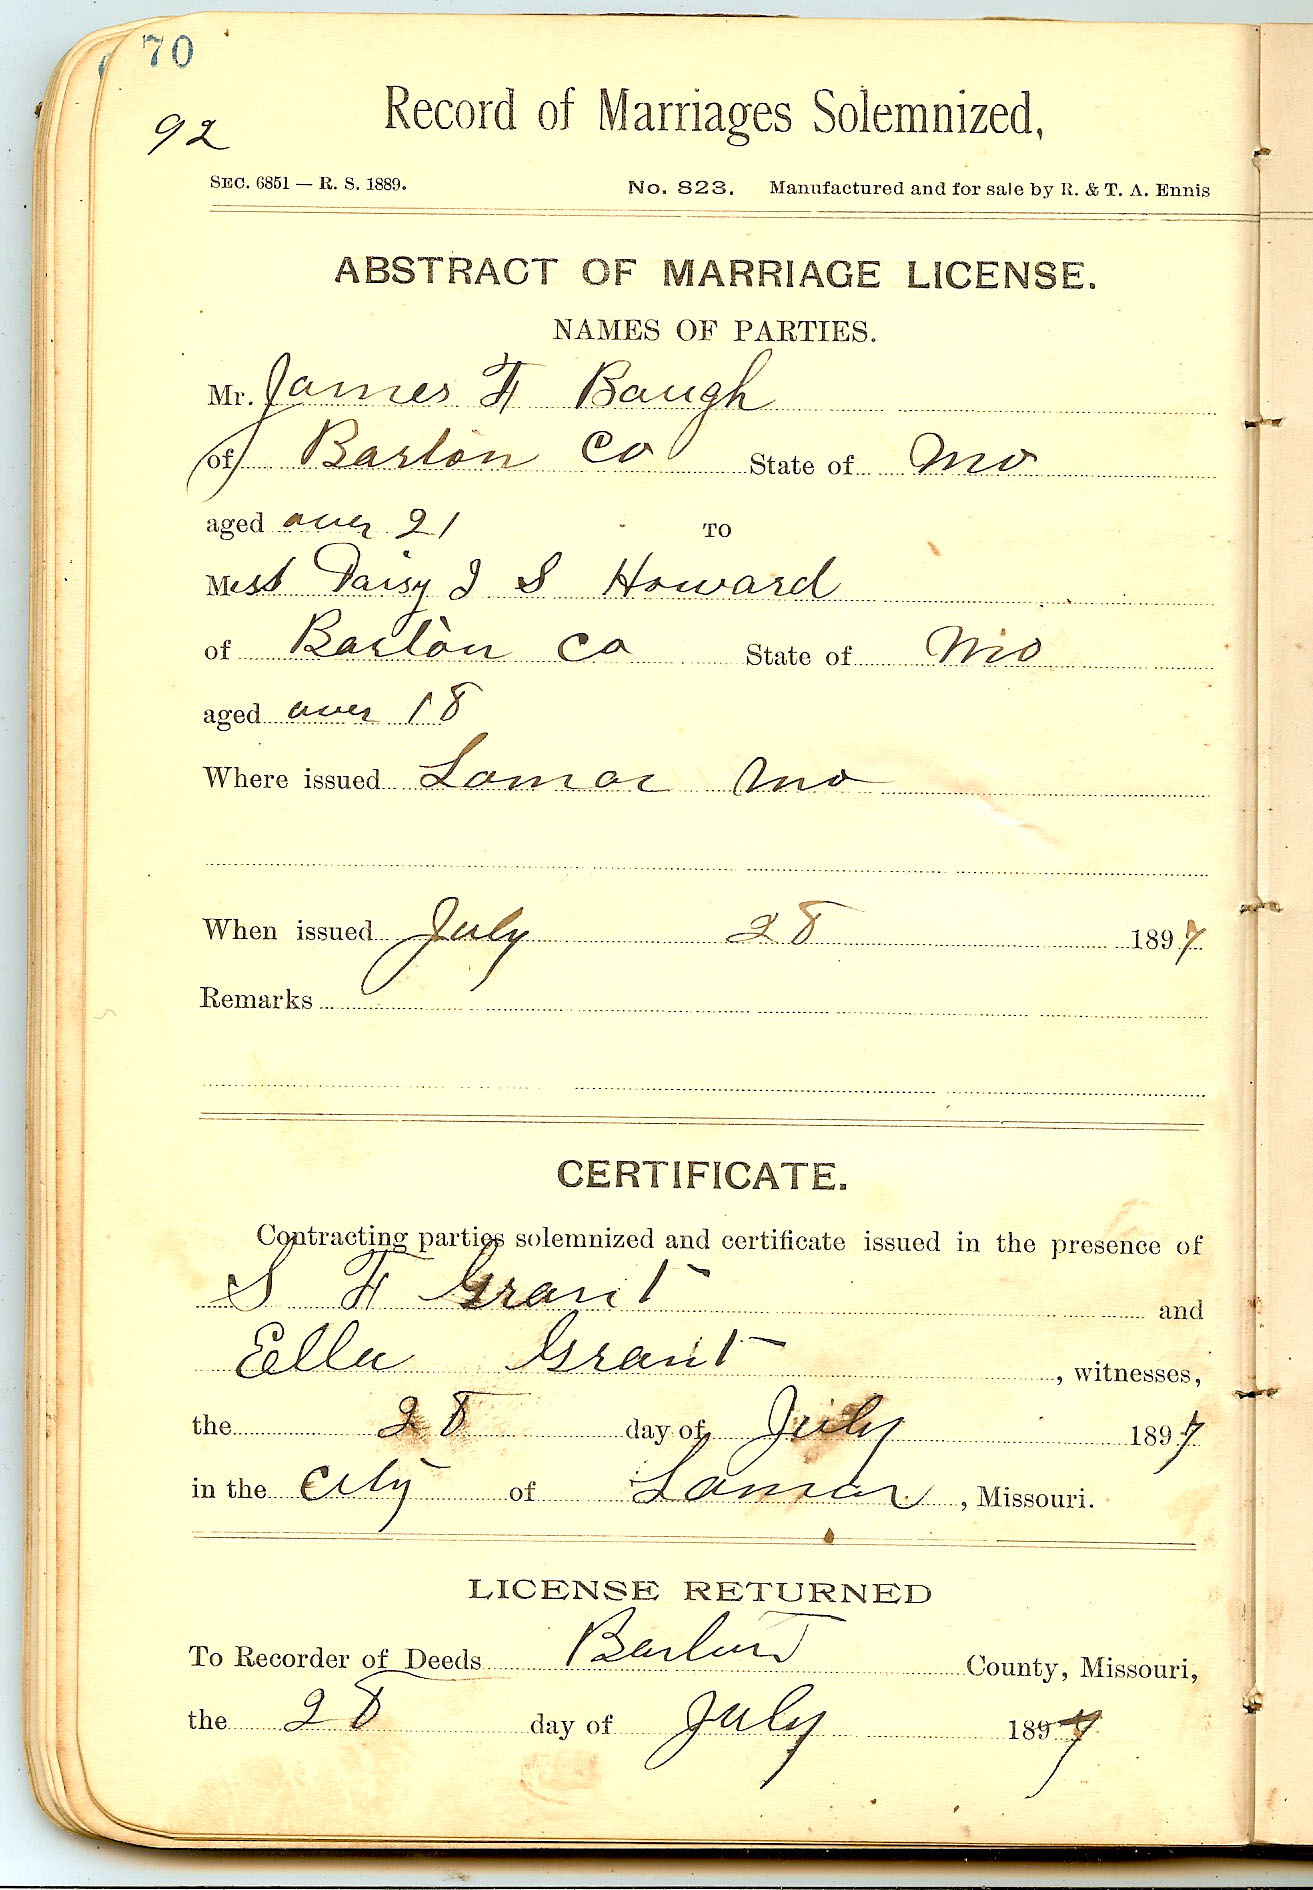 70
92
Record of Marriages Solemnized,
SEC. 6851 — R. S. 1889. No. 823. Manufactured and for sale by R. & T. A. Ennis
ABSTRACT OF MARRIAGE LICENSE.
NAMES OF PARTIES.
Mr. James F Baugh
of Barton Co State of Mo
aged over 21 TO
Miss Daisy I S Howard
of Barton Co State of Mo
aged over 18
Where issued Lamar Mo
When issued July 28 1897
Remarks
CERTIFICATE.
Contracting parties solemnized and certificate issued in the presence of
S F Grant and
Ella Grant , witnesses,
the 28 day of July 1897
in the City of Lamar , Missouri.
LICENSE RETURNED
To Recorder of Deeds Barton County, Missouri,
the 28 day of July 1897